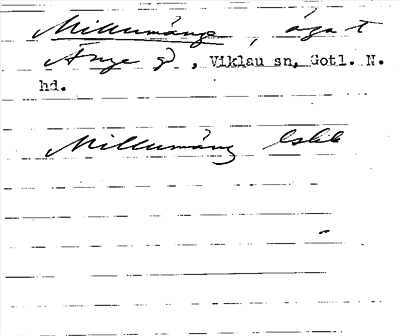 Millumänge, äga t
Änge g, Viklau sn, Gotl. N.
hd.
Millumäng